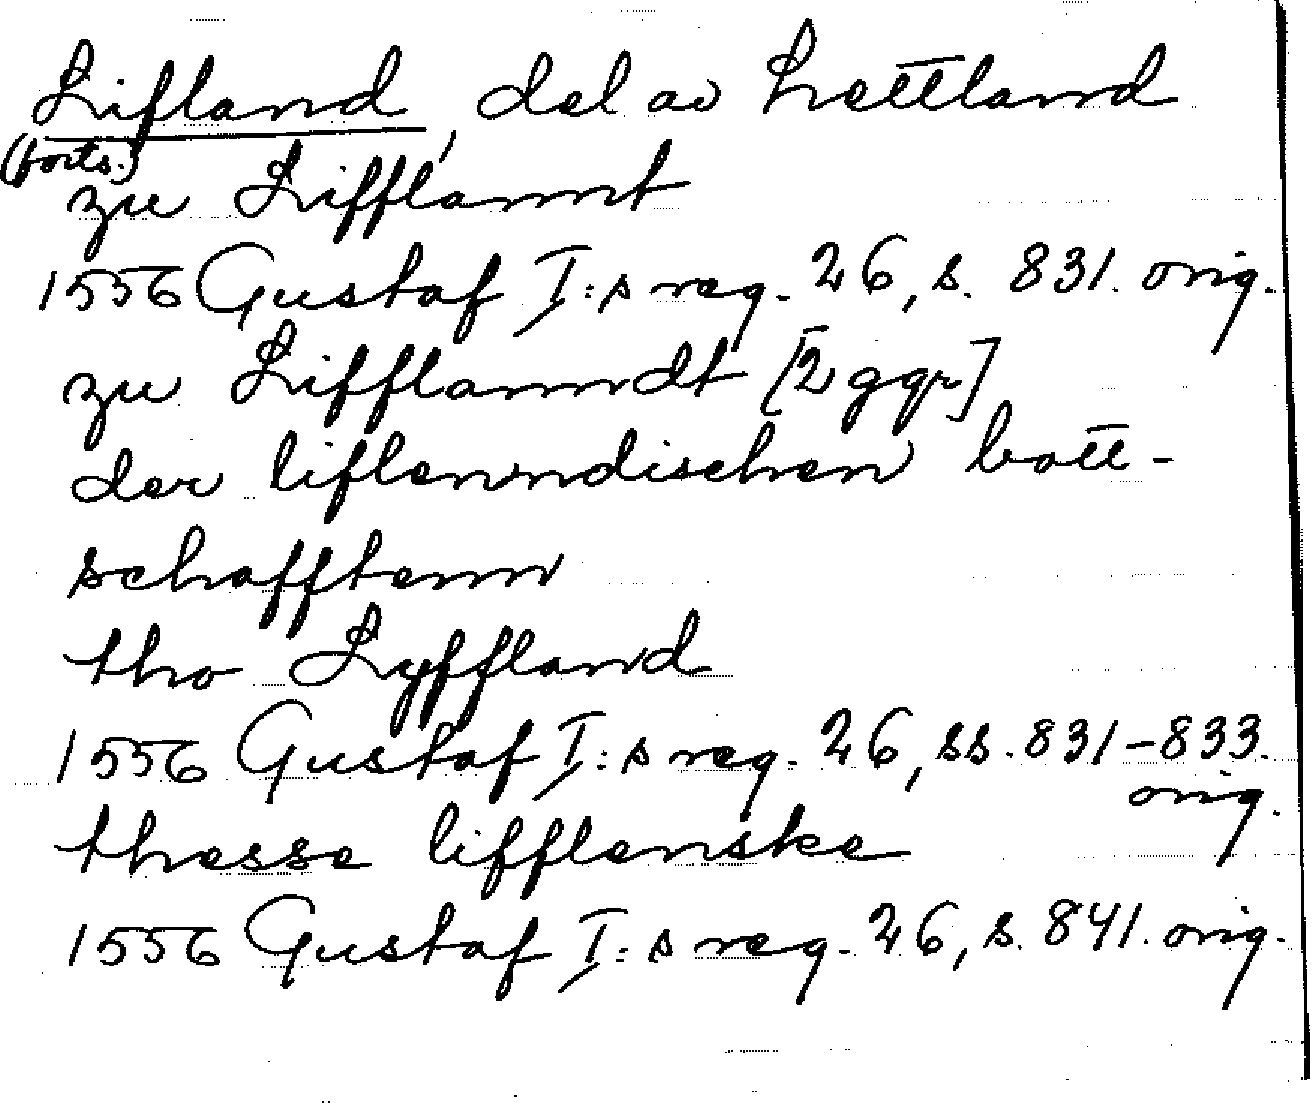 Lifland, del av Lettland
(forts.)
zu Lifflannt
1556 Gustaf I:s reg. 26, s. 831. orig.
zu Lifflanndt [2 ggr]
der liflenndischen bott-
schafftenn
tho Lyffland
1556 Gustaf I:s reg. 26, ss. 831-833.
orig.
thesse lifflenske
1556 Gustaf I:s reg. 26, s. 841. orig.